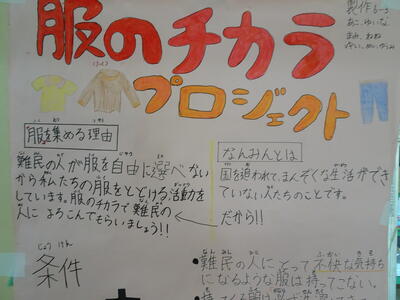 服のチカラ
プロジェクト
製作6-3
服を集める理由
難民の人が服を自由に選べない
から私たちの服をとどける活動を
しています。服のチカラで難民の
人に よろこんでもらいましょう!!
なんみんとは
国を追われて、まんぞくな生活ができ
ていない人たちのことです。
だから!!
条件
・難民の人にとって不快な気持ち
になるような服は持ってこない。